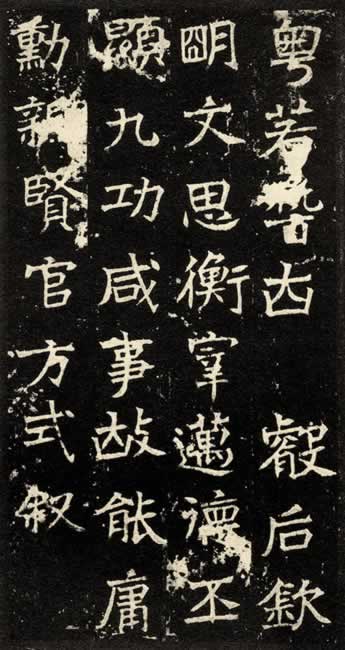 粵若稽古 叡后欽
明文思衡宰邁德丕
顯九功咸事故能庸
勳親賢官方式叙